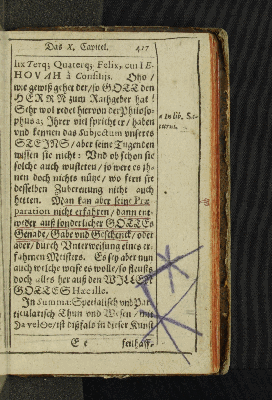 Das X. Capitel. 417
lix Terq; Quaterq; Felix, cui IE-
HOVAH à Consiliis. Oho/
wie gewiß gehet der/so GOTT den
HERRN zum Rathgeber hat!
Sehr wol redet hiervon der Philoso-
phus a: Ihrer viel spricht er/ haben
und kennen das Subjectum unseres
STEINS/ aber seine Tugenden
wissen sie nicht: Und ob schon sie
solche auch wusteten/ so were es ih-
nen doch nichts nütze/ wo fern sie
desselben Zubereitung nicht auch
hetten. Man kan aber seine Præ-
paration nicht erfahren/ dann ent-
weder auß sonderlicher GOTTES
Genade/ Gabe und Geschenck/ oder
aber/ durch Unterweisung eines er-
fahrnen Meisters. Es sey aber nun
auch welche weise es wolle/ so fleusts
doch alles her auß den WILLEN
GOTTES Hæc ille.
In Summa: Specialisch und Par-
ticularisch Thun und Wesen/ mit
/ ist dißfals in dieser Kunst
E e
a in lib. Se-
cretus.